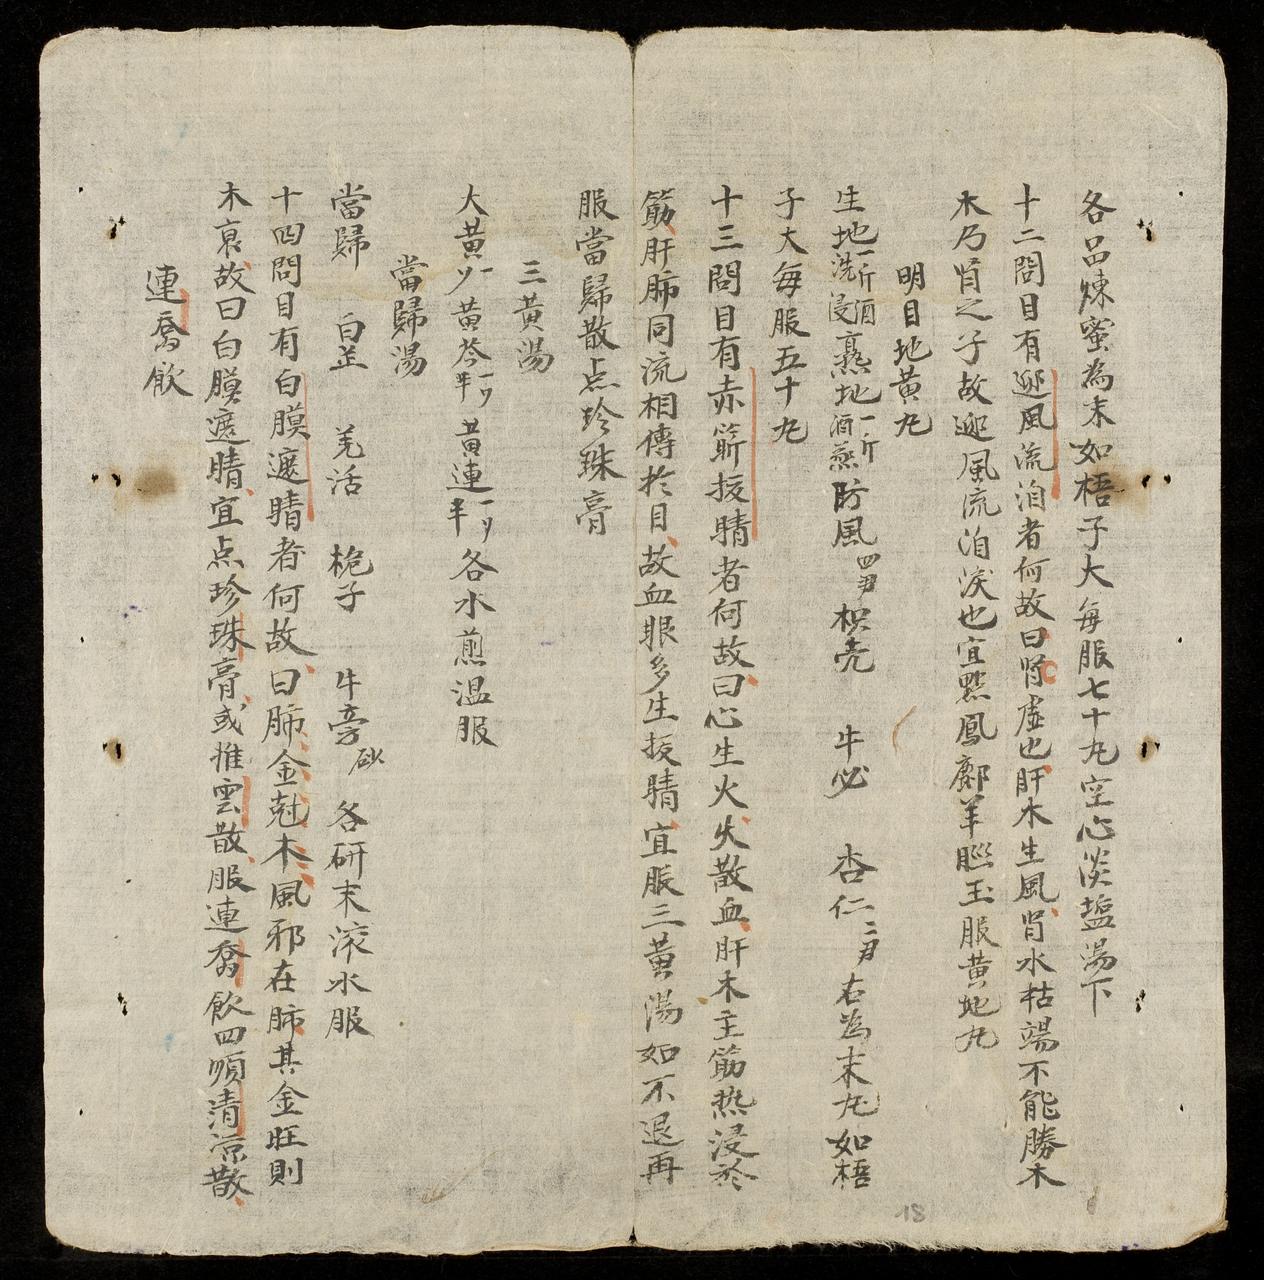 各品煉蜜為末如梧子大每服七十九空心淡塩湯下
十二問目有迎風流泪者何故曰肾虚也肝木生風肾水枯竭不能勝木
木乃肾之子故迎風流泪淚也宜點鳳麝羊腦玉服黄地丸
明目地黄丸
生地一斤酒洗浸熟地一斤酒蒸防風四两枳壳 牛必 杏仁二两右為末丸如梧
子大每服五十丸
十三問目有赤筋扳睛者何故曰心生火火散血肝木主筋热浸於
筋肝肺同流相傳於目故血眼多生扳睛宜服三黄湯如不退再
服當歸散点珍珠膏
三黄湯
大黄一刄黄芩一刄半黄連一刄半各水煎温服
當歸湯
當歸 白芷 羌活 梔子 牛旁炒 各研末滚水服
十四問目有白膜遮睛者何故曰肺金尅木風邪在肺其金旺則
木衰故曰白膜遮睛宜点珍珠膏或推雲散服連喬飲四順清凉散
連喬飲